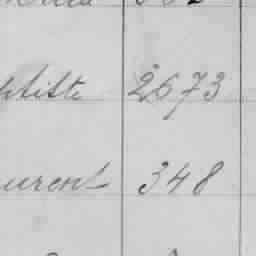 ptiste 2673
urent 348